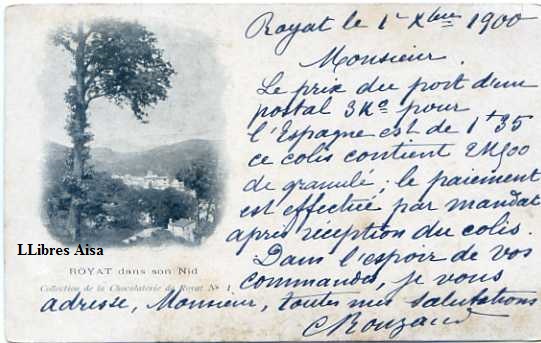 Royat le 1r Xbre 1900
Monsieur.
Le prix du port d'un
postal 3Ko pour
l'Espagne est de 1f35
ce colis contient 2K500
de granulé; le paiement
est effectué par mandat
après réception du colis.
Dans l'espoir de vos
commandes, je vous
adresse, Monsieur, toutes mes salutations
C Rouzaud
LLibres Aisa
ROYAT dans son Nid
Collection de la Chocolaterie de Royat No 1